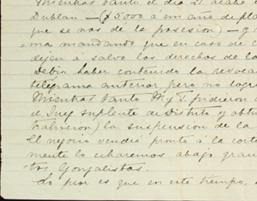 Mientras tanto el día 21 acabé
Dublan — ($5000 a un año de pla
que se nos dé la posesión) — q
ma mandando que en caso de
dejen á salvo los derechos de la
Debía haber contenido la revoca
telegrama anterior pero no logr
Mientras tanto M. y S. pidieron
el Juez Suplente de Distrito y obtu
la suspensión de la
El negocio vendrá pronto á la corte
mente lo echaremos abajo gra
tos Gonzalistas.
Lo peor es que en este tiempo,